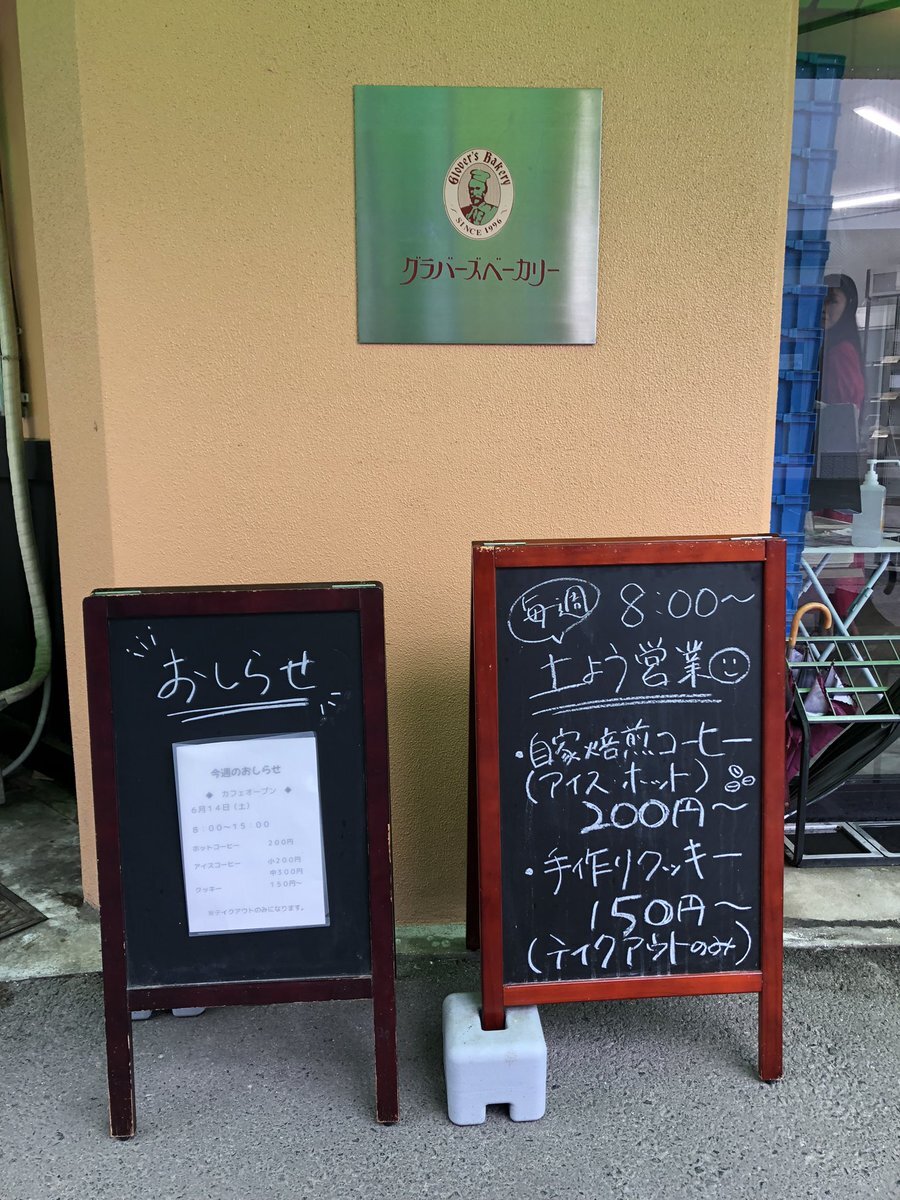 Glover's Bakery
SINCE 1996
グラバーズベーカリー
おしらせ
今週のおしらせ
◆ カフェオープン ◆
6月14日(土)
8:00~15:00
ホットコーヒー 200円
アイスコーヒー 小200円
中300円
クッキー 150円~
※テイクアウトのみになります。
毎週 8:00~
土よう営業
・自家焙煎コーヒー
(アイス・ホット)
200円~
・手作りクッキー
150円~
(テイクアウトのみ)